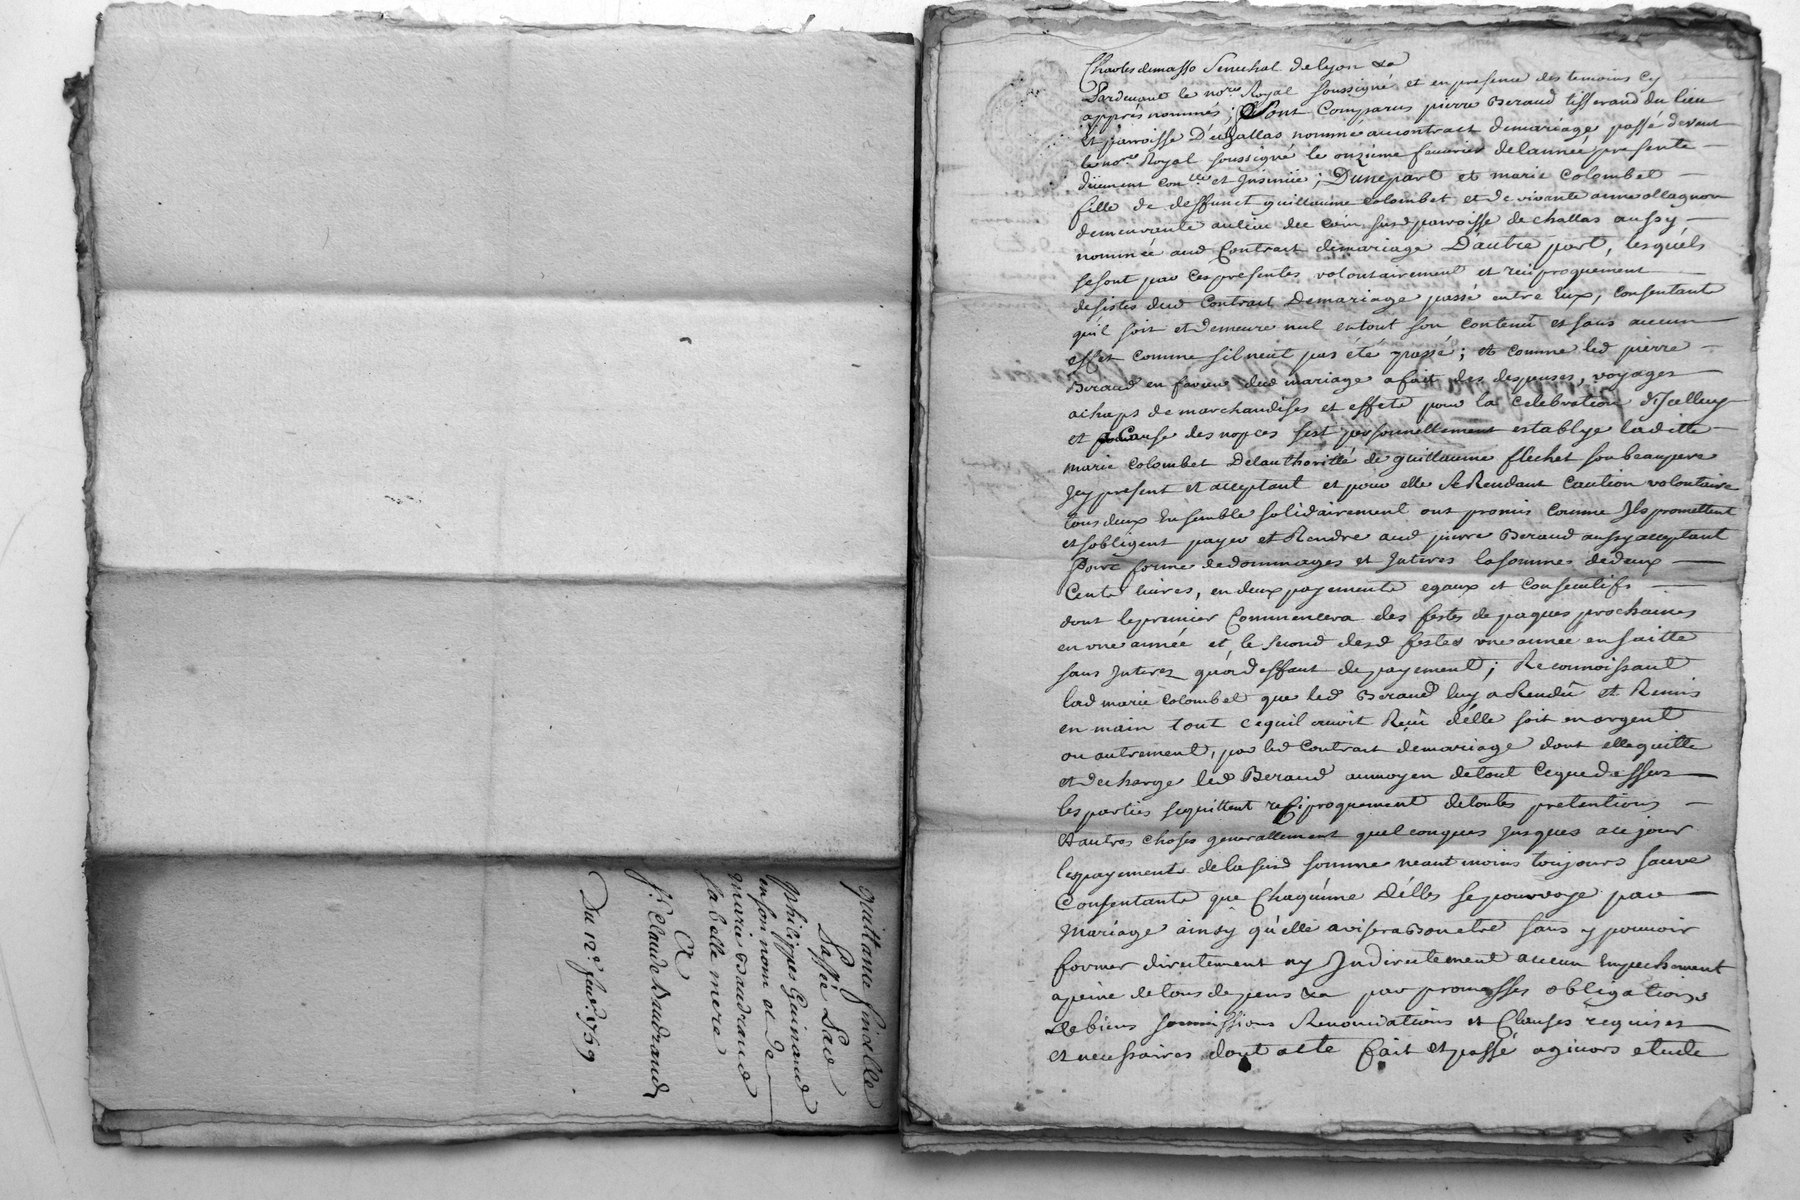 quittance finalle
Passée Par
Philippes Guinand
en son nom et de
Marie Baudrand
sa belle mere
A
Sr. Claude Baudrand
Du 12e. fevr. 1769
Charles demasso Senechal de lyon &a
Pardevant le nore. Royal soussigné et en presence des temoins cy
apprés nommés; Sont Comparus pierre Beraud tisserand du lieu
et parroisse nommé au contract de mariage passé devant
le nore. Royal soussigné le onzieme fevrier de lannée presente
düement conllé et Insinüé; Dune part et marie Colombet
fille de deffunct guillaume Colombet et de vivante anne ollagnon
demeurante au lieu du susd parroisse de challas aussy
nommée aud Contract de mariage D'autre part, lesquels
se sont par ces presentes volontairement et reciproquement
desistés dud Contract de mariage passé entre Eux, Consentants
quil soit et demeure nul en tout son Contenû et sans aucun
effet comme sil neut pas été passé; et comme led pierre
Beraud en faveur dud mariage a fait des despenses, voyages
achaps de marchandises et effets pour la Celebration d'Icelluy
et Cause des nopces sest personnellement establye laditte
marie Colombet De lauthorité de guillaume flechet son beaupere
Icy present et acceptant et pour elle se Rendant Caution volontaire
tous deux Ensemble solidairement ont promis Comme Ils promettent
et sobligent payer et Rendre aud pierre Beraud aussy acceptant
Pour forme de dommages et Interes la somme de deux
Cents livres, en deux payements egaux et Consecutifs
dont le premier Commencera des festes de paques prochaines
en une année et le second desd festes une annee en suitte
sans Interez qu'a deffaut de payement; Reconnoissant
lad marie Colombet que led Beraud luy a Rendû et Remis
en main tout ce quil avoit Reçû d'elle soit en argent
ou autrement, par led Contract de mariage dont elle quitte
et decharge led Beraud au moyen de tout Ceque dessus
les parties se quittent reciproquement de toutes pretentions
et autres choses generallement quelconques Jusques a ce jour
le payement de la susd somme neantmoins toujours sauve
Consentants que Chaquüne d'elles se pourvoye par
Mariage ainsy qu'elle avisera bon etre sans y pouvoir
former directement ny Indirectement aucun Empechement
a peine de tous depens &a par promesses obligations
de biens soumissions Renonciations et Clauses requises
et necessaires dont acte fait et passé etude